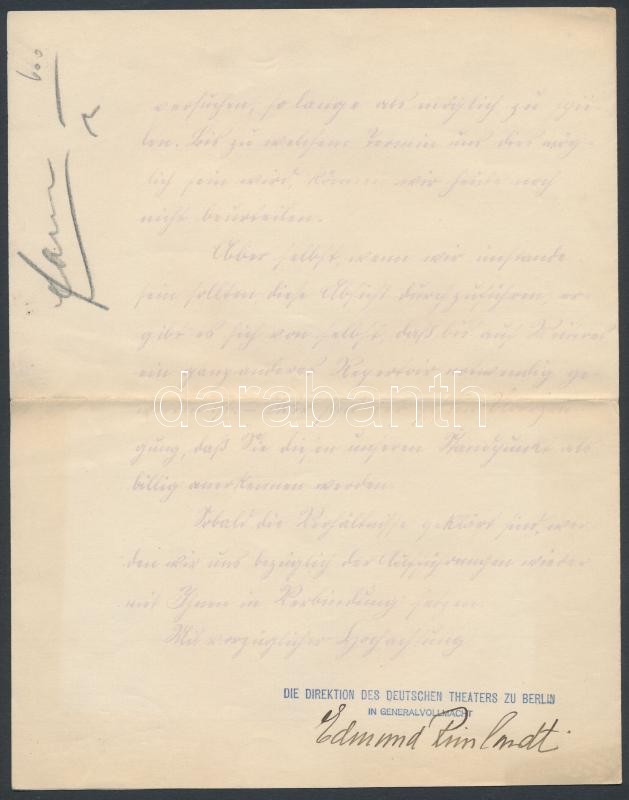 versuchen, so lange als möglich zu spie-
len. Bis zu welchem Termin uns dies mög-
lich sein wird, können wir heute noch
nicht beurteilen.
Aber selbst, wenn wir imstande
sein sollten, diese Absicht durchzuführen, er-
gibt es sich von selbst, daß bis auf Weiteres
ein ganz anderes Repertoir notwendig ge-
darabanth
gung, daß Sie diesen unseren Standpunkt als
billig anerkennen werden.
Sobald die Verhältnisse geklärt sind, wer-
den wir uns bezüglich der Aufführungen wieder
mit Ihnen in Verbindung setzen.
Mit vorzüglicher Hochachtung
DIE DIREKTION DES DEUTSCHEN THEATERS ZU BERLIN
IN GENERALVOLLMACHT
Edmund Reinhardt